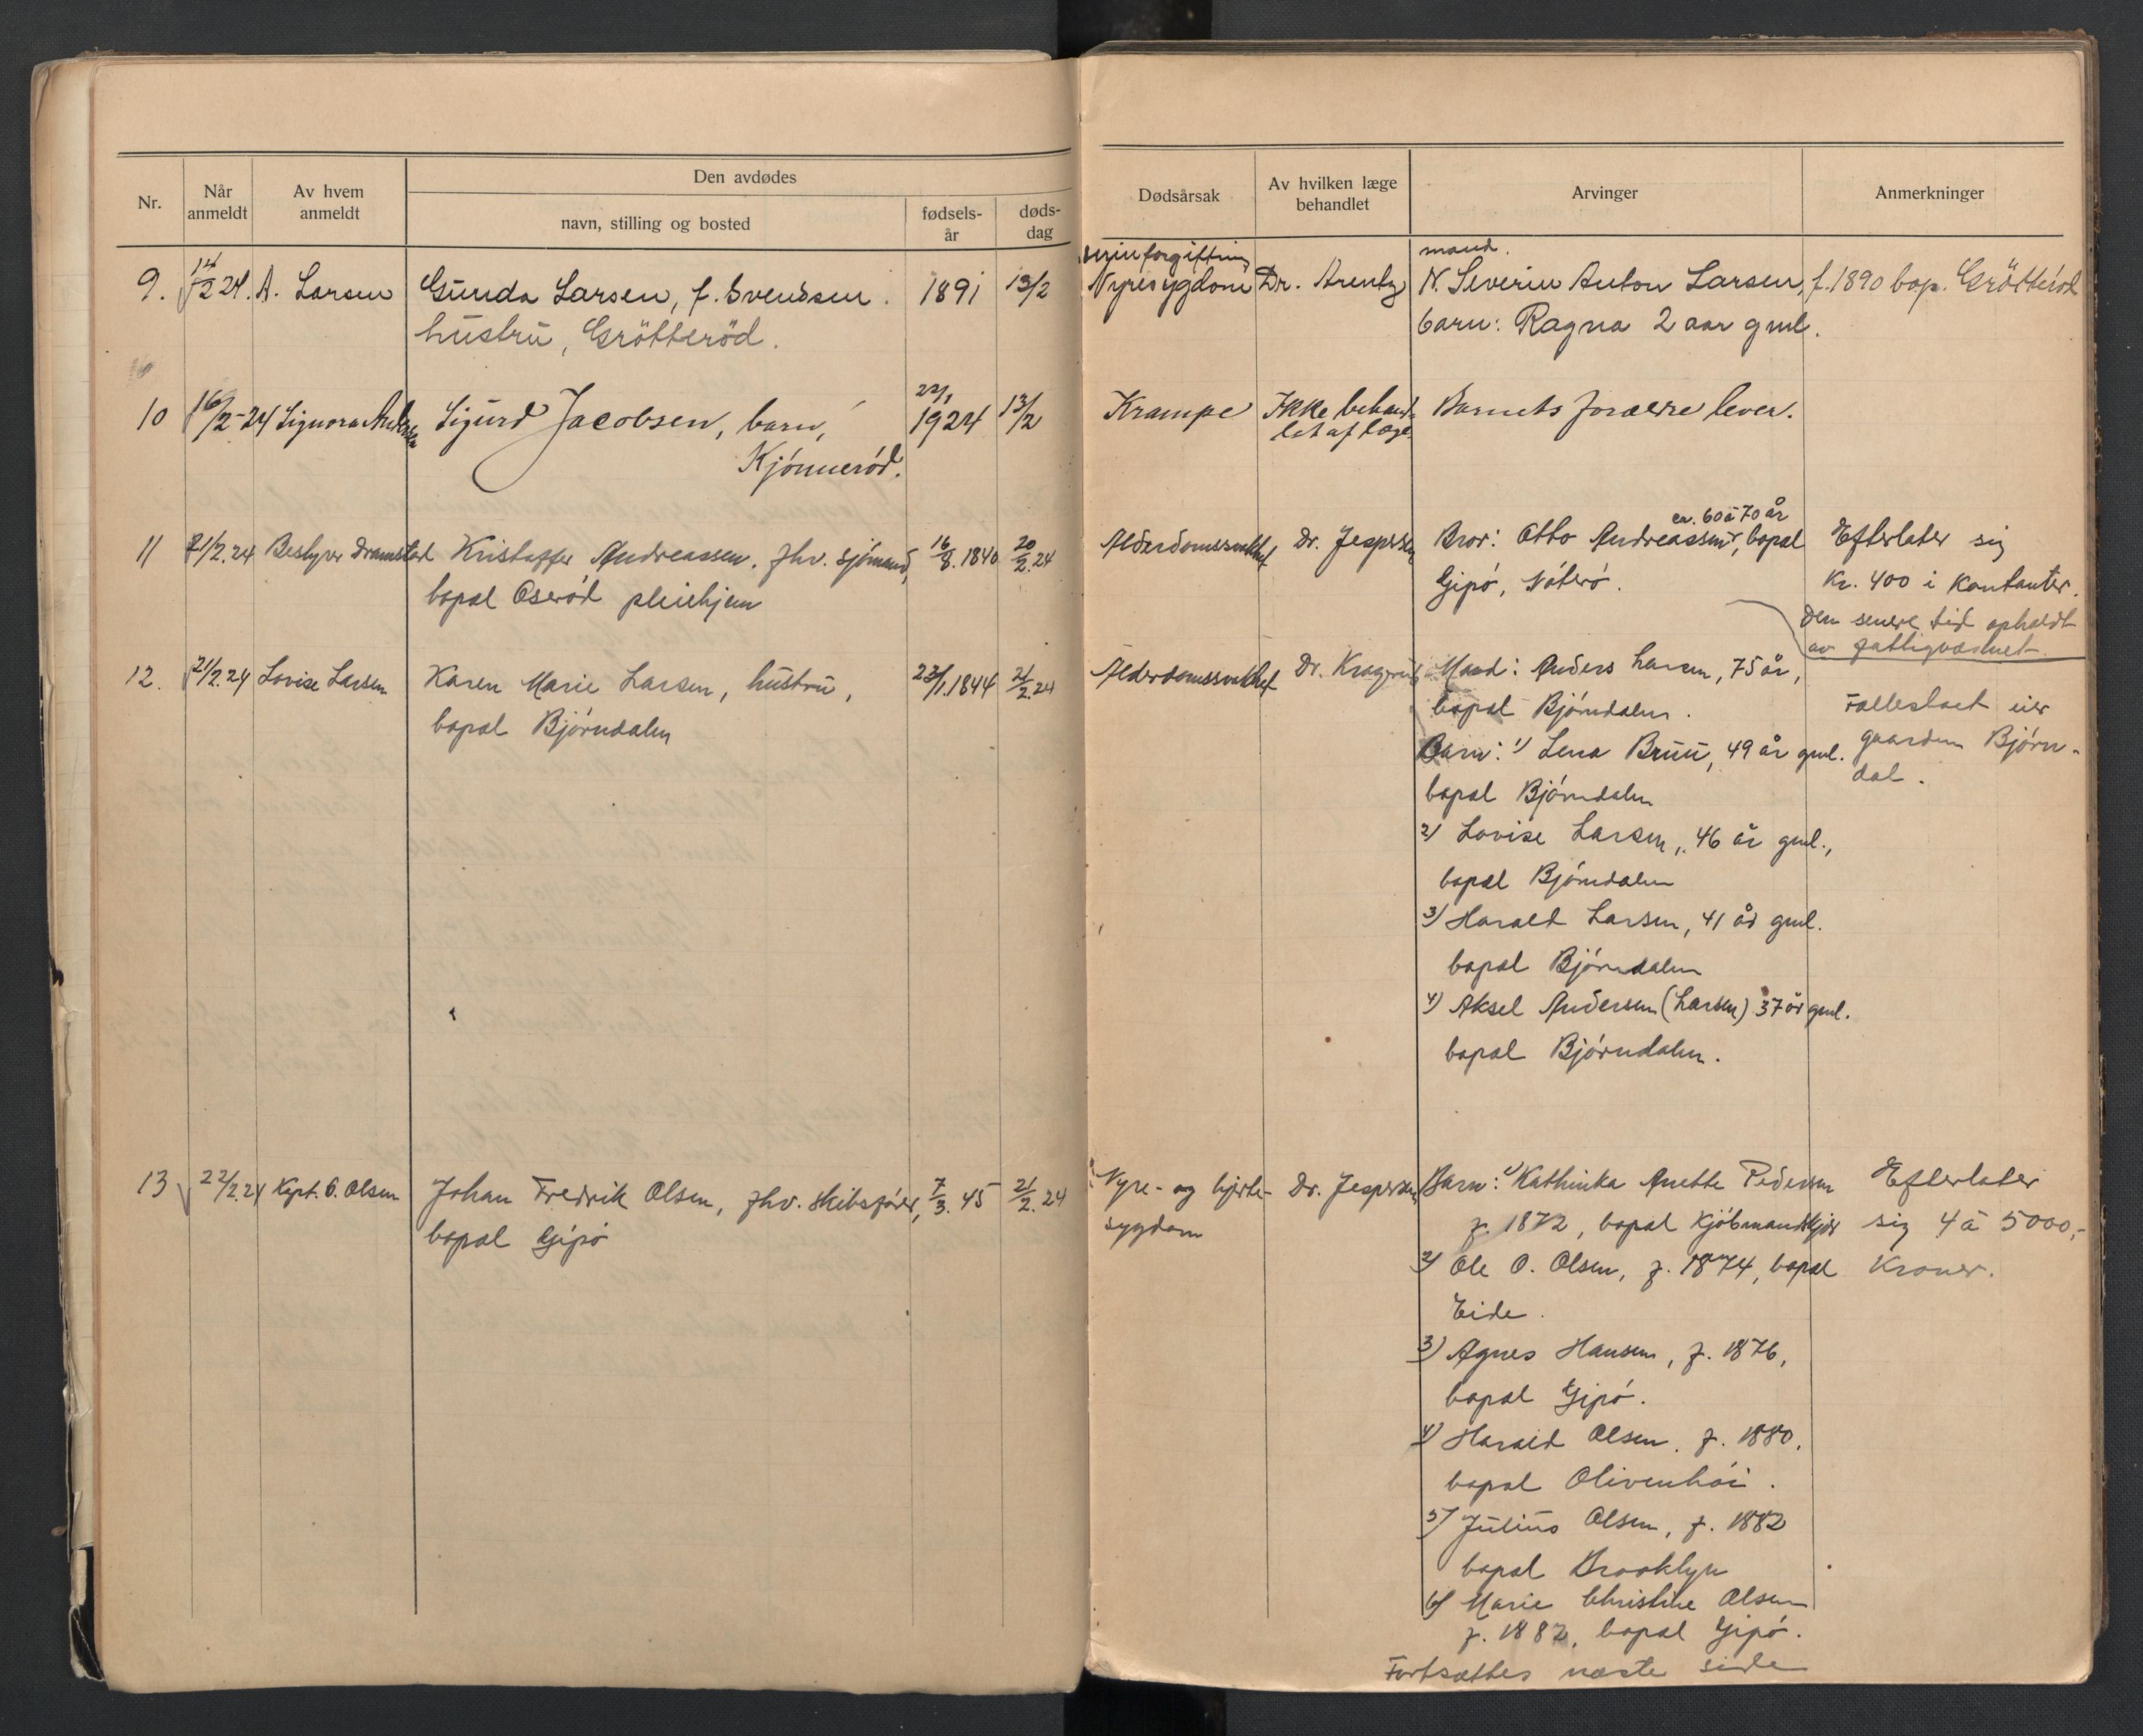 Nr.
Når anmeldt
Av hvem anmeldt
Den avdødes
navn, stilling og bosted
fødsels-år
døds-dag
Dødsårsak
Av hvilken læge behandlet
Arvinger
Anmerkninger
9. 14/2 24. A. Larsen Gunda Larsen, f. Svendsen. 1891 13/2 urinforgiftning
Nyresygdom Dr. Arentz mand.
N. Severin Anton Larsen, f. 1890 bop. Grötteröd
hustru, Grötteröd.
barn: Ragna 2 aar gml.
10 16/2-24 Signora Andersen Sigurd Jacobsen, barn, 22/1 1924 13/2 Krampe Ikke behand- Barnets forældre lever.
Kjönneröd.
let af læge.
11 21/2.24 Bestyrer Dramstad Kristoffer Andreassen, fhv. sjömand, 16/8.1840 20/2.24 Alderdomssvakhet Dr. Jespersen Bror: Otto Andreassen, ca. 60 à 70 år bopæl Efterlater sig
bopæl Oseröd pleiehjem
Gipö, Nöterö.
Kr. 400 i kontanter.
Den senere tid opholdt
av fattigvæsenet
12. 21/2.24 Lovise Larsen Karen Marie Larsen, hustru, 23/1.1844 21/2.24 Alderdomssvakhet Dr. Kragerud Mand: Anders Larsen, 75 år,
bopæl Björndalen
bopæl Björndalen.
Fællesboet eier
Barn: 1) Lena Bruu, 49 år gml.
gaarden Björn-
bopæl Björndalen
dal.
2) Lovise Larsen, 46 år gml.,
bopæl Björndalen
3) Harald Larsen, 41 år gml.
bopæl Björndalen
4) Aksel Andersen (Larsen) 37 år gml.
bopæl Björndalen.
13 22/2.24 Kapt. O. Olsen Johan Fredrik Olsen, fhv. skibsfører, 7/3.45 21/2.24 Nyre- og hjerte- Dr. Jespersen Barn: 1) Kathinka Anette Pedersen Efterlater
bopæl Gipö
sygdom
f. 1872, bopæl Kjöbmandskjær sig 4 à 5000,-
2) Ole O. Olsen, f. 1874, bopæl Kroner.
Eide.
3) Agnes Hansen, f. 1876,
bopæl Gipö.
4) Harald Olsen, f. 1880,
bopæl Olivenhöi.
5) Julius Olsen, f. 1882
bopæl Brooklyn
6) Marie Christine Olsen
f. 1882, bopæl Gipö.
Fortsættes næste side